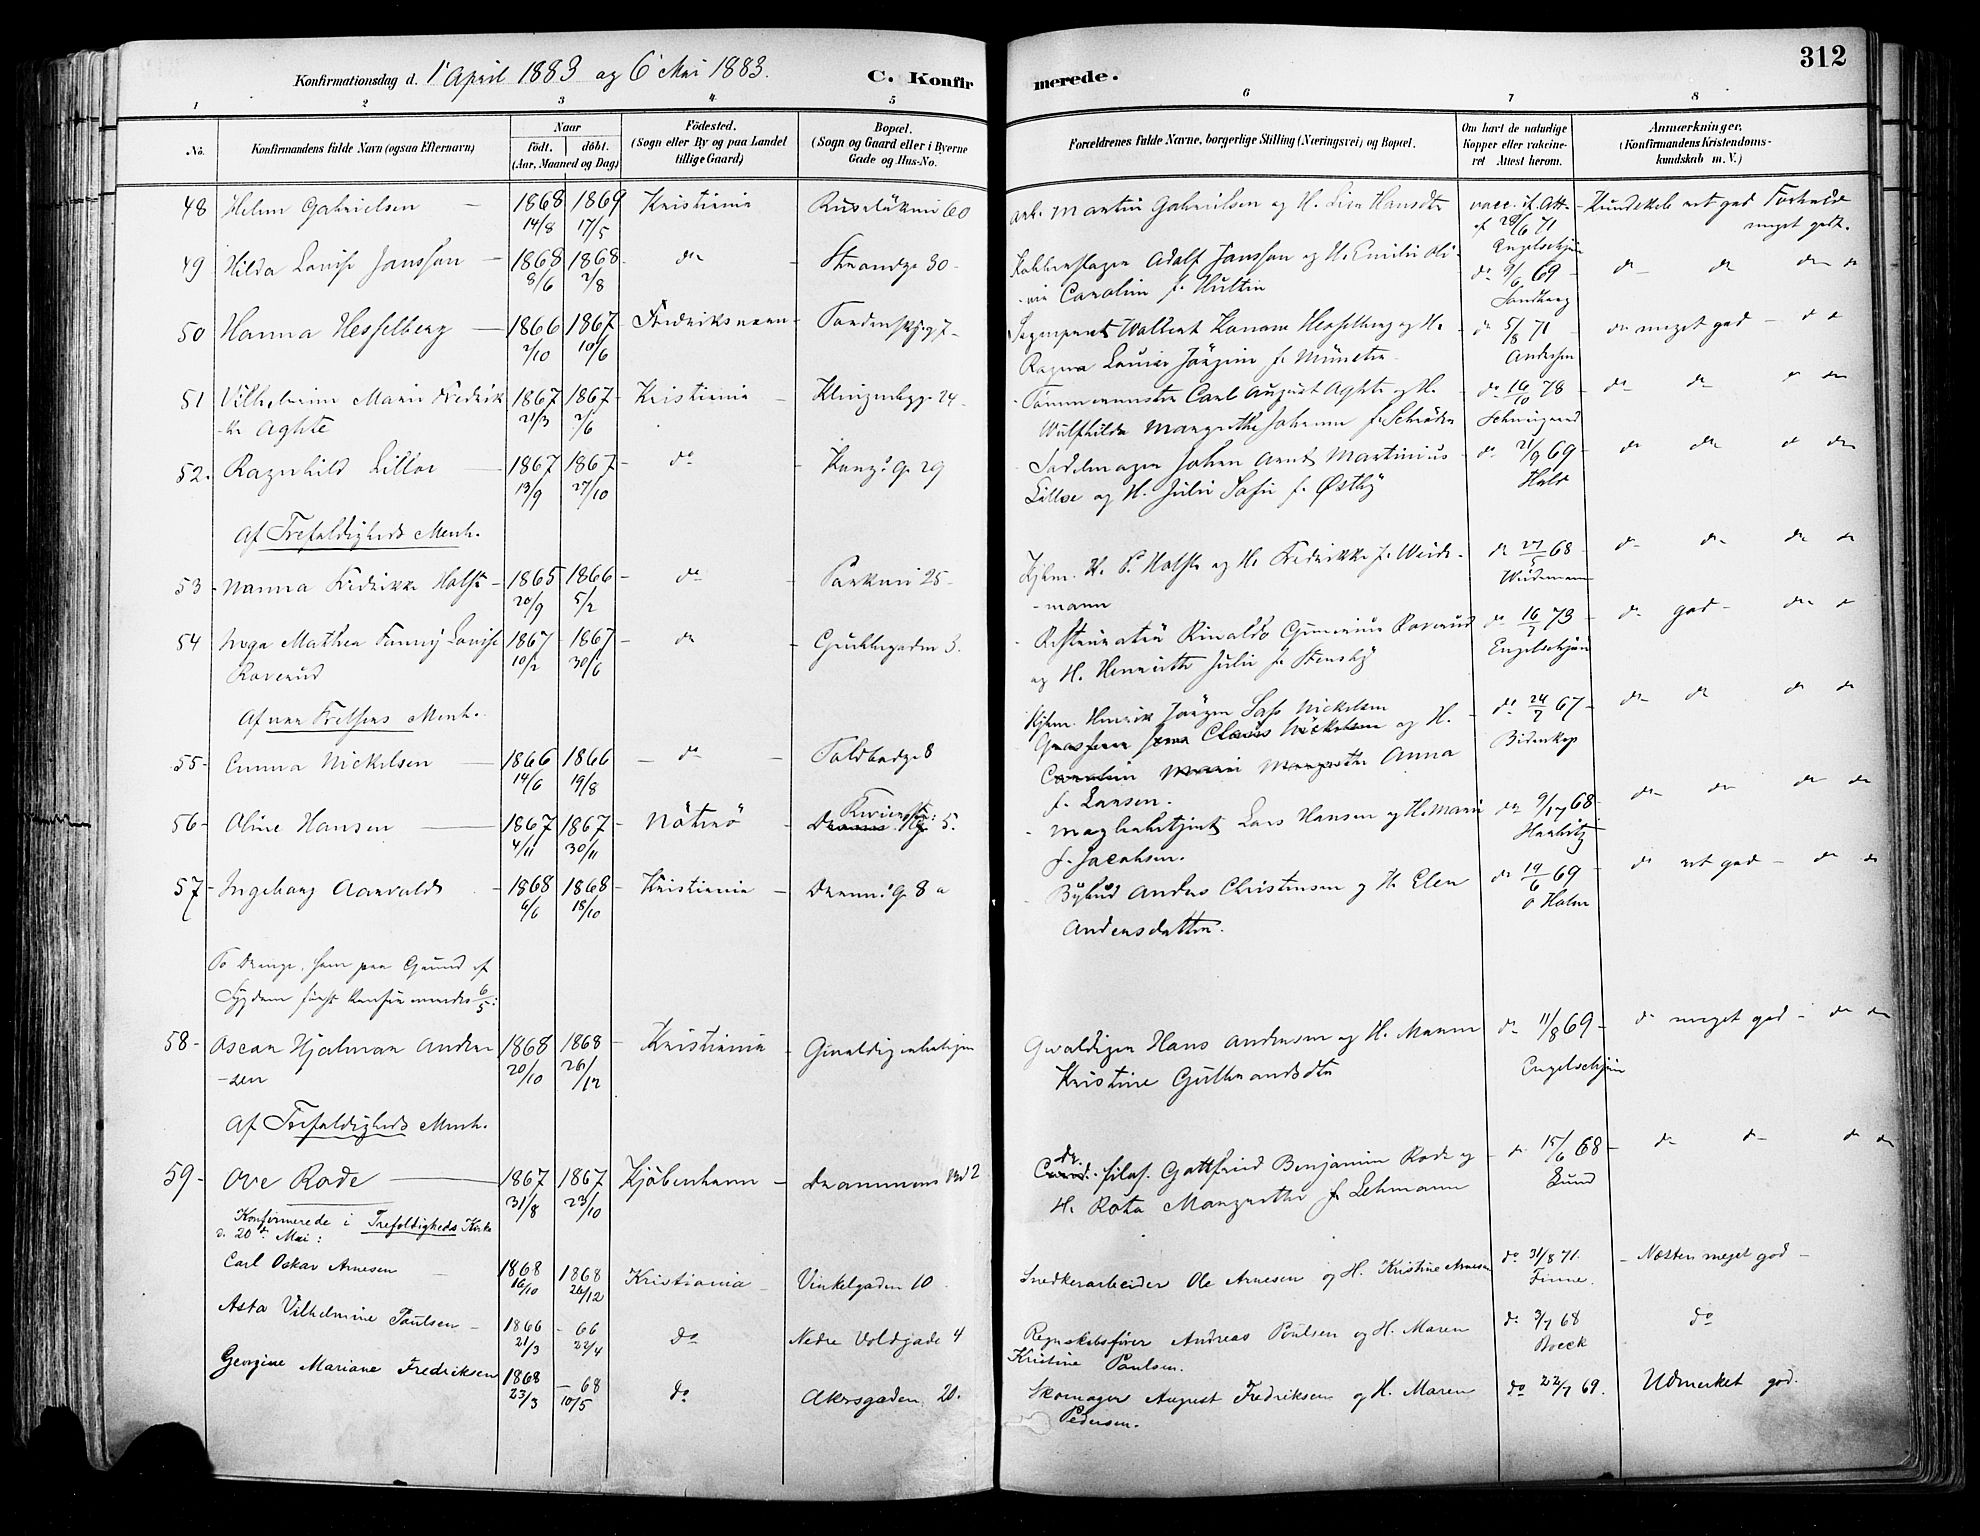 312
Konfirmationsdag d. 1 April 1883 og 6 Mai 1883.
C. Konfirmerede.
1 2 3 4 5 6 7 8
No.
Konfirmandens fulde Navn (ogsaa Efternavn)
Naar
födt. döbt.
(Aar, Maaned og Dag)
Födested.
(Sogn eller By og paa Landet
tillige Gaard)
Bopæl.
(Sogn og Gaard eller i Byerne
Gade og Hus-No.
Forældrenes fulde Navne, borgerlige Stilling (Næringsvei) og Bopæl.
Om havt de naturlige
Kopper eller vakcine-
ret Attest herom.
Anmærkninger.
(Konfirmandens Kristendoms-
kundskab m. V.)
48 Helen Gabrielsen 1868 14/8 1869 17/5 Kristiania 60
Martin Gabrielsen og H. Lise Hansdtr
28/6 71 Engelschjøn
meget godt.
49 Hilda Lovise Jansson 1868 8/6 1868 2/8 do Strandg. 30
Adolf Jansson og H. Emilie Oli-
vie Caroline f. Hultin
do 9/6 69 Sandberg do do do do
50 Hanna Hesselberg 1866 2/10 1867 10/6 Fredriksværn 7
Hesselberg og H.
Ragna Louise Jörgine f. Münster
do 5/8 71 Andersen do meget god do
51 Vilhelmine Marie Fredrik-
ke Aghte 1867 21/3 1867 2/6 Kristiania Klingenbgg. 24
Tömmermester Carl August Aghte og H.
Wulfhilde Margrethe Johanne f. Schröder
do 16/10 78 Schweigaard do do do
52. Ragnhild Lilloe 1867 13/9 1867 27/10 do Kongs G. 29
Sadelmager Johan Arndt Martinius
Lilloe og H. Julie Sofie f. Østby
do 21/9 69 Holst do do do
Af Trefoldigheds Menh.
53 Nanna Fredrikke Holst 1865 20/9 1866 5/2 do Parkvei 25
Kjbm. H. P. Holst og H. Fredrikke f. Weide-
mann
do 27/5 68 Weidemann do do do do
54 Inga Mathea Fanny Lovise
Roverud 1867 10/2 1867 30/6 do 3.
Restauratör Rinaldo Gunerius Roverud
og H. Henriette Julie f. Stensby
do 16/7 73 Engelschjøn do god do
Af vor Frelsers Menh.
55 Emma Nickelsen 1866 14/6 1866 19/8 do Toldbodg. 8
Kjbm. Henrik Jörgen Sass Nickelsen
Grosserer Jens Claus Nickelsen og H.
Caroline Marie Margrethe Anna
f. Larsen.
do 24/7 67 Bidenkap do do do do
56 Oline Hansen 1867 4/11 1867 30/11 Nöterö 5.
Lars Hansen og H. Marie
f. Jacobsen.
do 68 do do do do
57 Ingeborg Aarvold 1868 6/6 1868 18/10 Kristiania Dramms G. 8 a
Bybud Anders Christensen og H. Elen
Andersdatter.
do 19/6 69 Holm do ret god do do
To Drenge, som paa Grund af
Sygdom först konfirmerdes 6/5:
58 Oscar Hjalmar Ander-
sen 1868 20/10 1868 26/12 Kristiania
Gevaldiger Hans Andersen og H. Maren
Kristine Gulbrandsdtr
do 11/8 69 Engelschjøn do meget god do do
Af Trefoldigheds Menh.
59 Ove Rode 1867 31/8 1867 23/10 Kjöbenhavn Drammens 2
Dr. filos. Gottfried Benjamin Rode og
H. Rota Margrethe f. Lehmann
do 15/6 68 Lund do do do do
Konfirmerede i Trefoldigheds Kirke
d. 20de Mai:
Carl Oskar Arnesen 1868 16/10 1868 26/12 Kristiania Vinkelgaden 10
Snedkerarbeider Ole Arnesen og H. Kristine Arnesen
do 31/8 71. Finne. Næsten meget god
Asta Vilhelmine Paulsen 1866 21/3 66 22/4 do Nedre Voldgade 4
Regnskabsförer Andreas Poulsen og H. Maren
Kristine Paulsen.
do 3/7 68 Boeck do
Georgine Mariane Fredriksen 1868 23/3 68 10/5 do Akersgaden 20.
Skomager August Fredriksen og H. Maren
Pedersen.
do 22/7 69. Udmerket god.